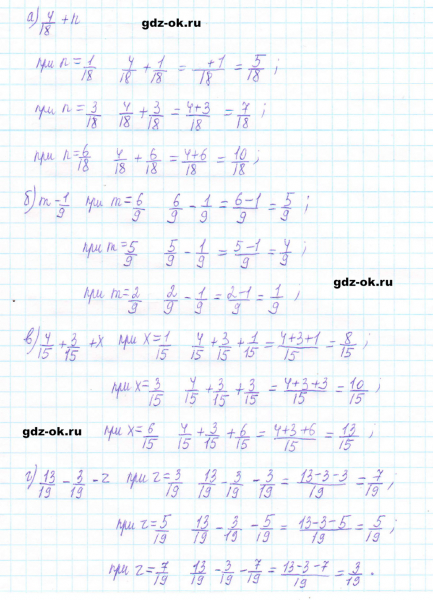 gdz-ok.ru
а) 4/18 + n
при n = 1/18 4/18 + 1/18 = +1/18 = 5/18 ;
при n = 3/18 4/18 + 3/18 = 4+3/18 = 7/18 ;
при n = 6/18 4/18 + 6/18 = 4+6/18 = 10/18 ;
б) m - 1/9 при m = 6/9 6/9 - 1/9 = 6-1/9 = 5/9 ;
при m = 5/9 5/9 - 1/9 = 5-1/9 = 4/9 ;
gdz-ok.ru
при m = 2/9 2/9 - 1/9 = 2-1/9 = 1/9 ;
в) 4/15 + 3/15 + x при x = 1/15 4/15 + 3/15 + 1/15 = 4+3+1/15 = 8/15 ;
при x = 3/15 4/15 + 3/15 + 3/15 = 4+3+3/15 = 10/15 ;
gdz-ok.ru
при x = 6/15 4/15 + 3/15 + 6/15 = 4+3+6/15 = 13/15 ;
г) 13/19 - 3/19 - z при z = 3/19 13/19 - 3/19 - 3/19 = 13-3-3/19 = 7/19 ;
при z = 5/19 13/19 - 3/19 - 5/19 = 13-3-5/19 = 5/19 ;
при z = 7/19 13/19 - 3/19 - 7/19 = 13-3-7/19 = 3/19 .